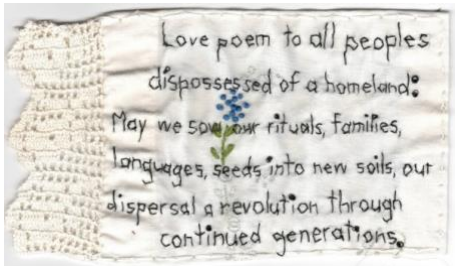 Love poem to all peoples
dispossessed of a homeland:
May we sow our rituals, families,
languages, seeds into new soils, our
dispersal a revolution through
continued generations.